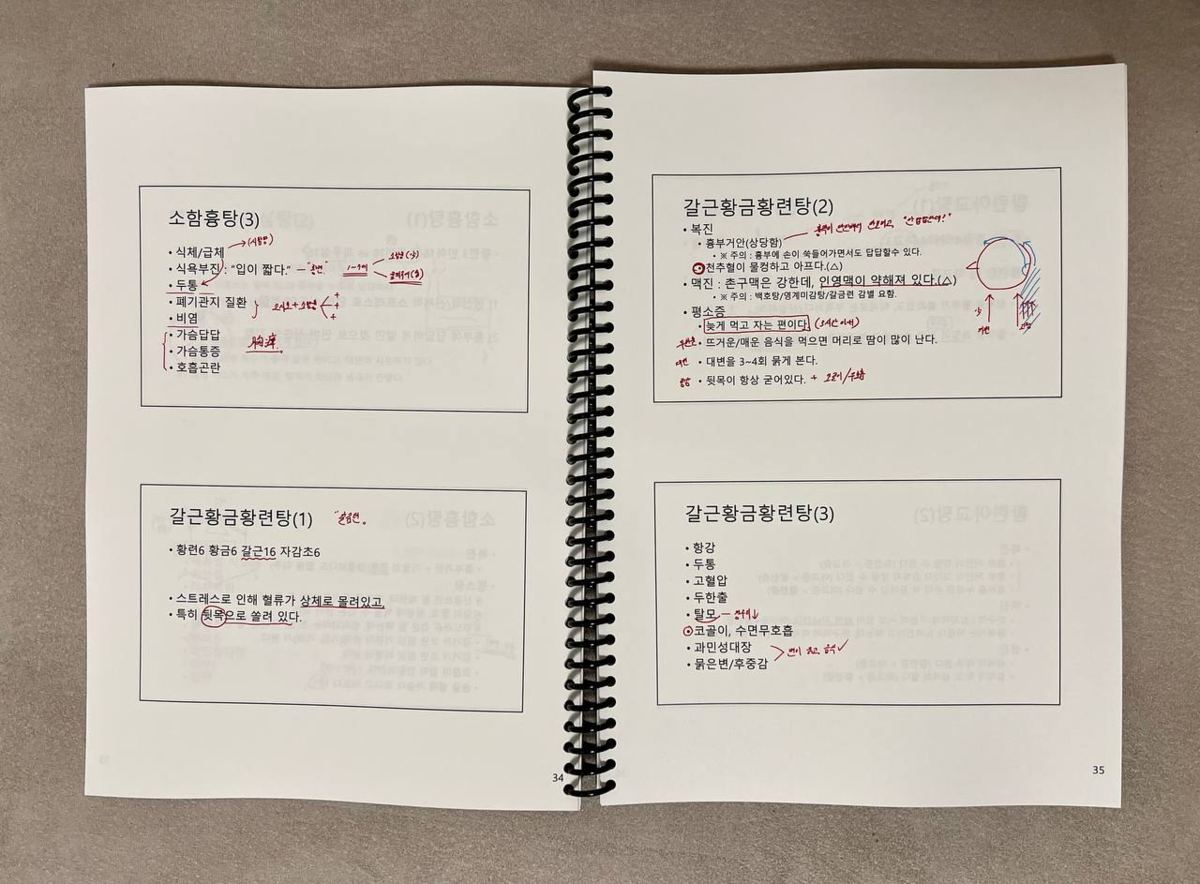 소함흉탕(3)
• 식체/급체
• 식욕부진 : “입이 짧다.”
• 두통
• 폐기관지 질환
• 비염
• 가슴답답
• 가슴통증
• 호흡곤란
갈근황금황련탕(1)
• 황련6 황금6 갈근16 자감초6
• 스트레스로 인해 혈류가 상체로 몰려있고,
• 특히 뒷목으로 쏠려 있다.
34
갈근황금황련탕(2)
• 복진
• 흉부거안(상당함)
• ※ 주의 : 흉부에 손이 쑥들어가면서도 답답할수 있다.
• 천추혈이 물컹하고 아프다.(△)
• 맥진 : 촌구맥은 강한데, 인영맥이 약해져 있다.(△)
• ※ 주의 : 백호탕/영계미감탕/갈금련 감별 요함.
• 평소증
• 늦게 먹고 자는 편이다.
• 뜨거운/매운 음식을 먹으면 머리로 땀이 많이 난다.
• 대변을 3~4회 묽게 본다.
• 뒷목이 항상 굳어있다.
갈근황금황련탕(3)
• 항강
• 두통
• 고혈압
• 두한출
• 탈모
• 코골이, 수면무호흡
• 과민성대장
• 묽은변/후중감
35